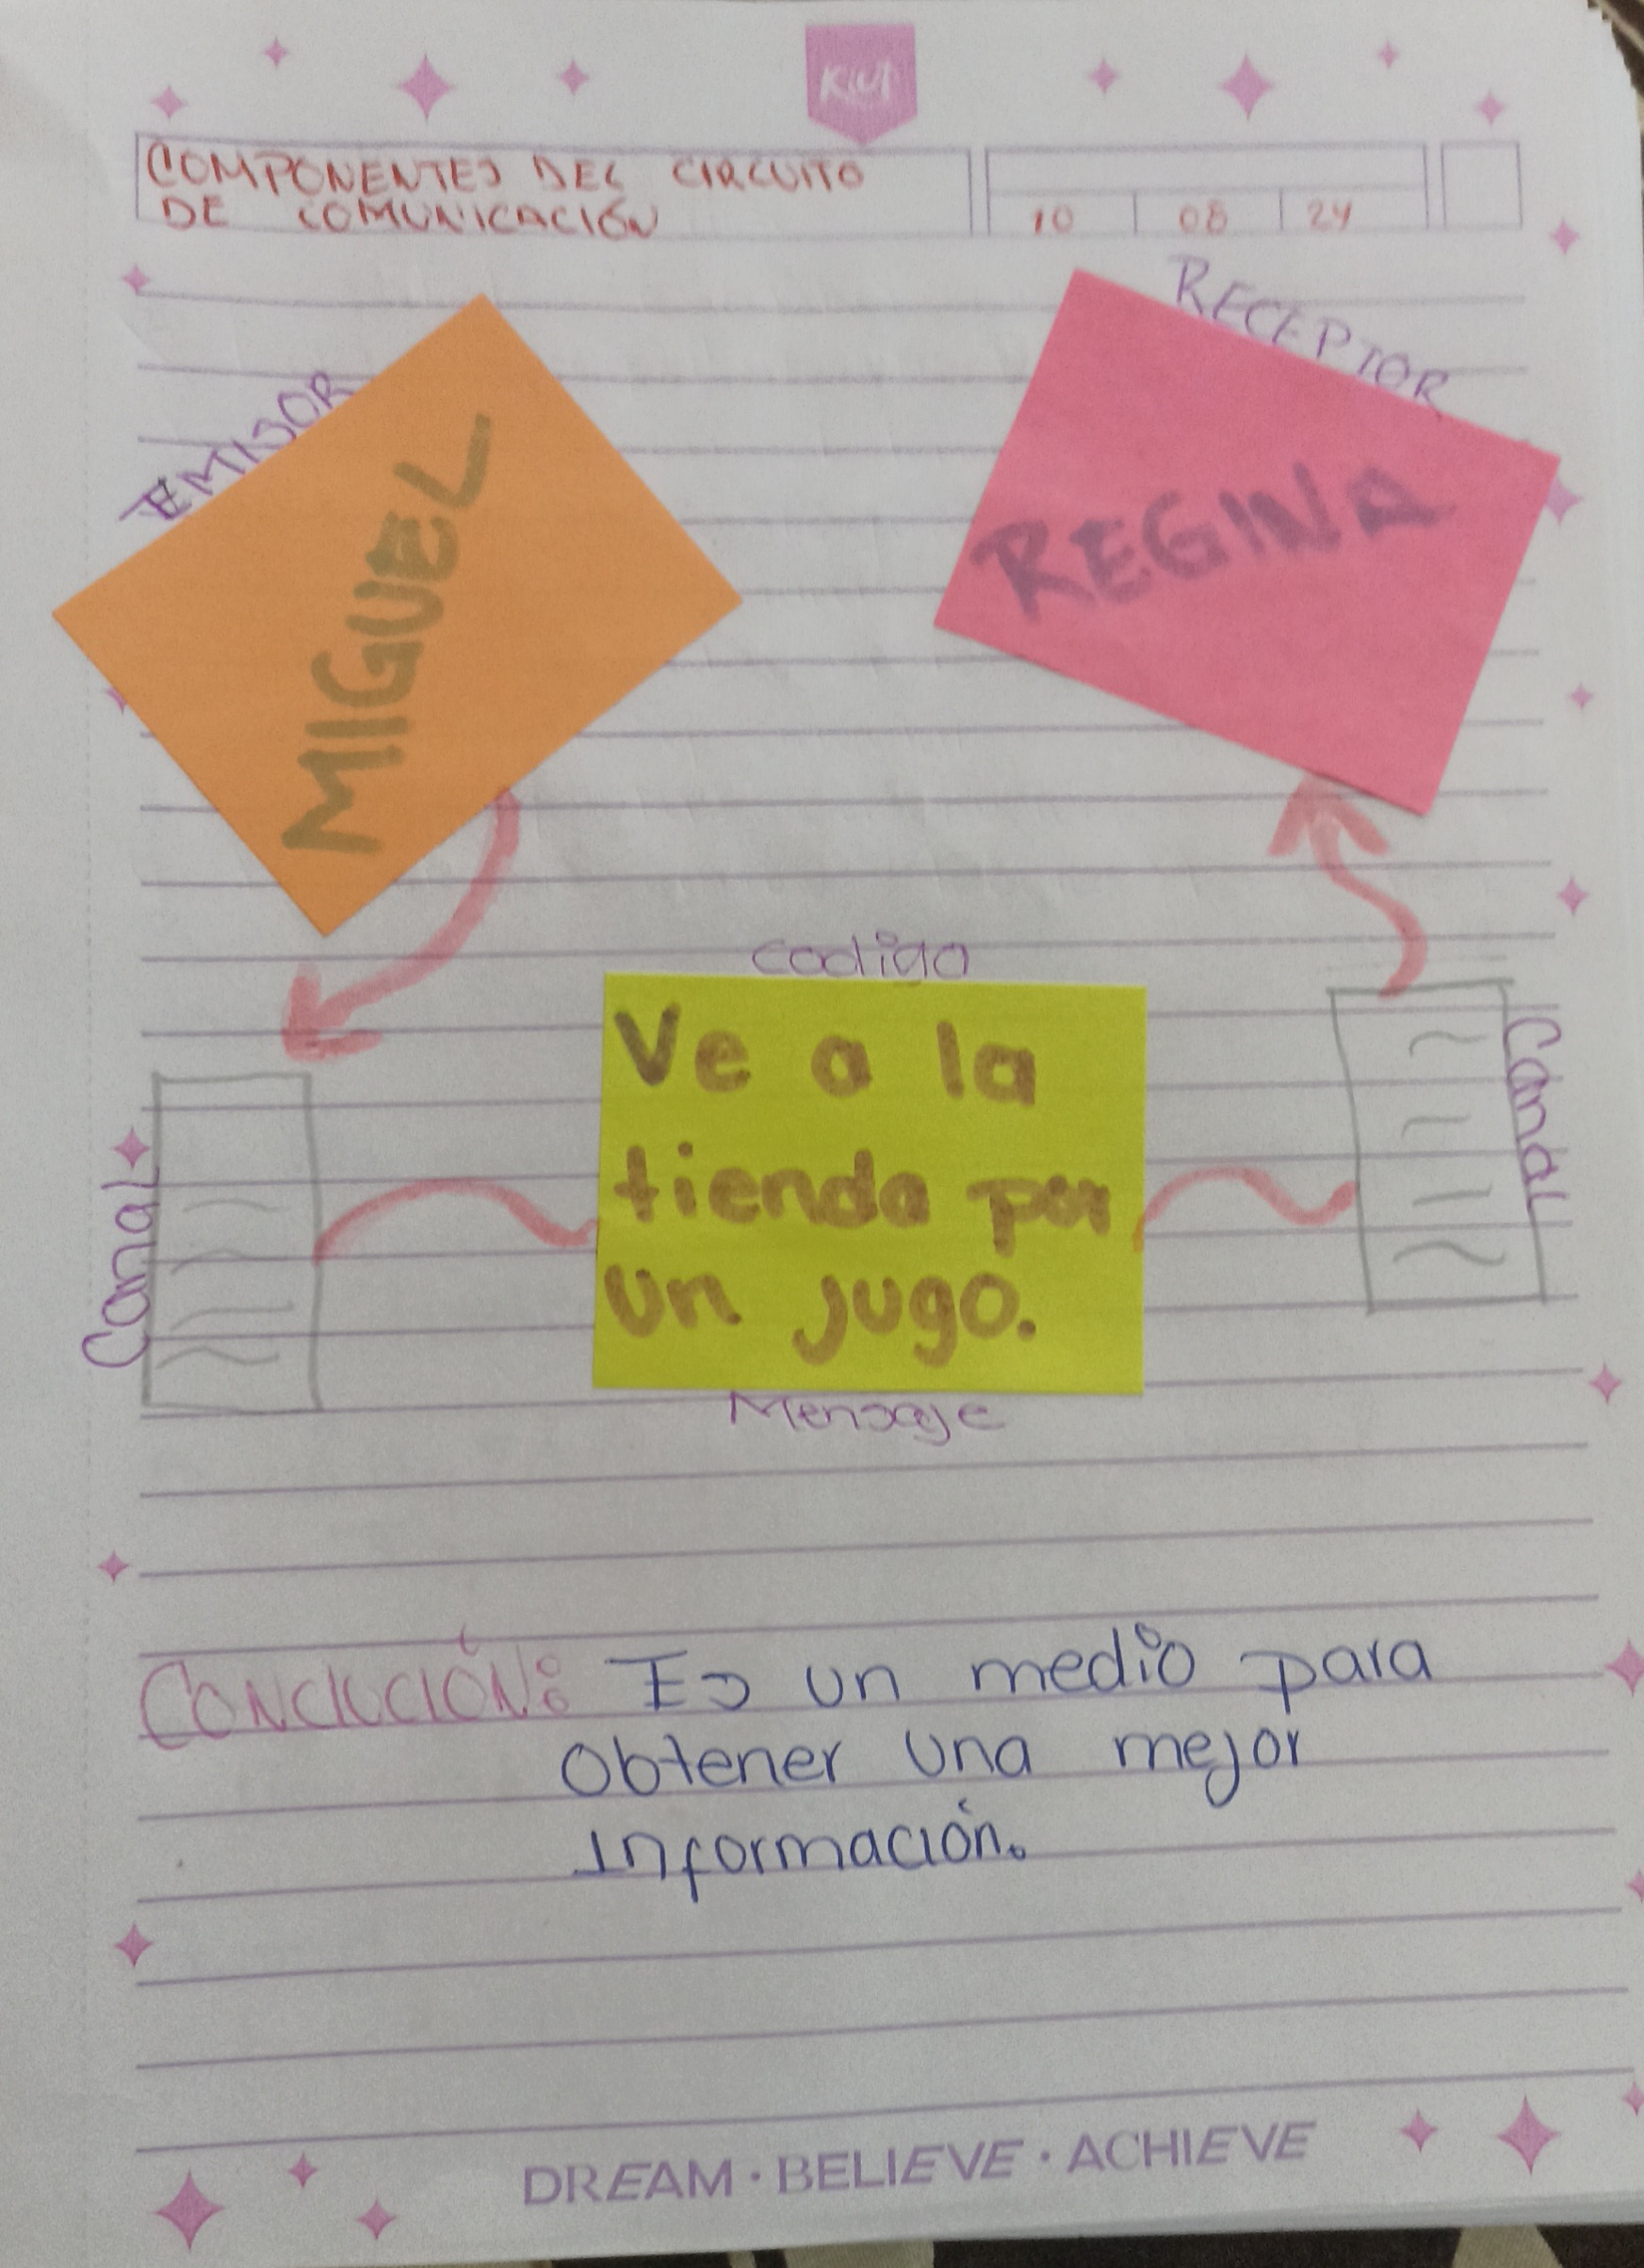 KIUT
COMPONENTES DEL CIRCUITO
DE COMUNICACIÓN
10 08 24
EMISOR
MIGUEL
RECEPTOR
REGINA
codigo
Ve a la
tienda por
un jugo.
Mensaje
Canal
Canal
CONCLUCIÓN: Es un medio para
obtener una mejor
información.
DREAM · BELIEVE · ACHIEVE